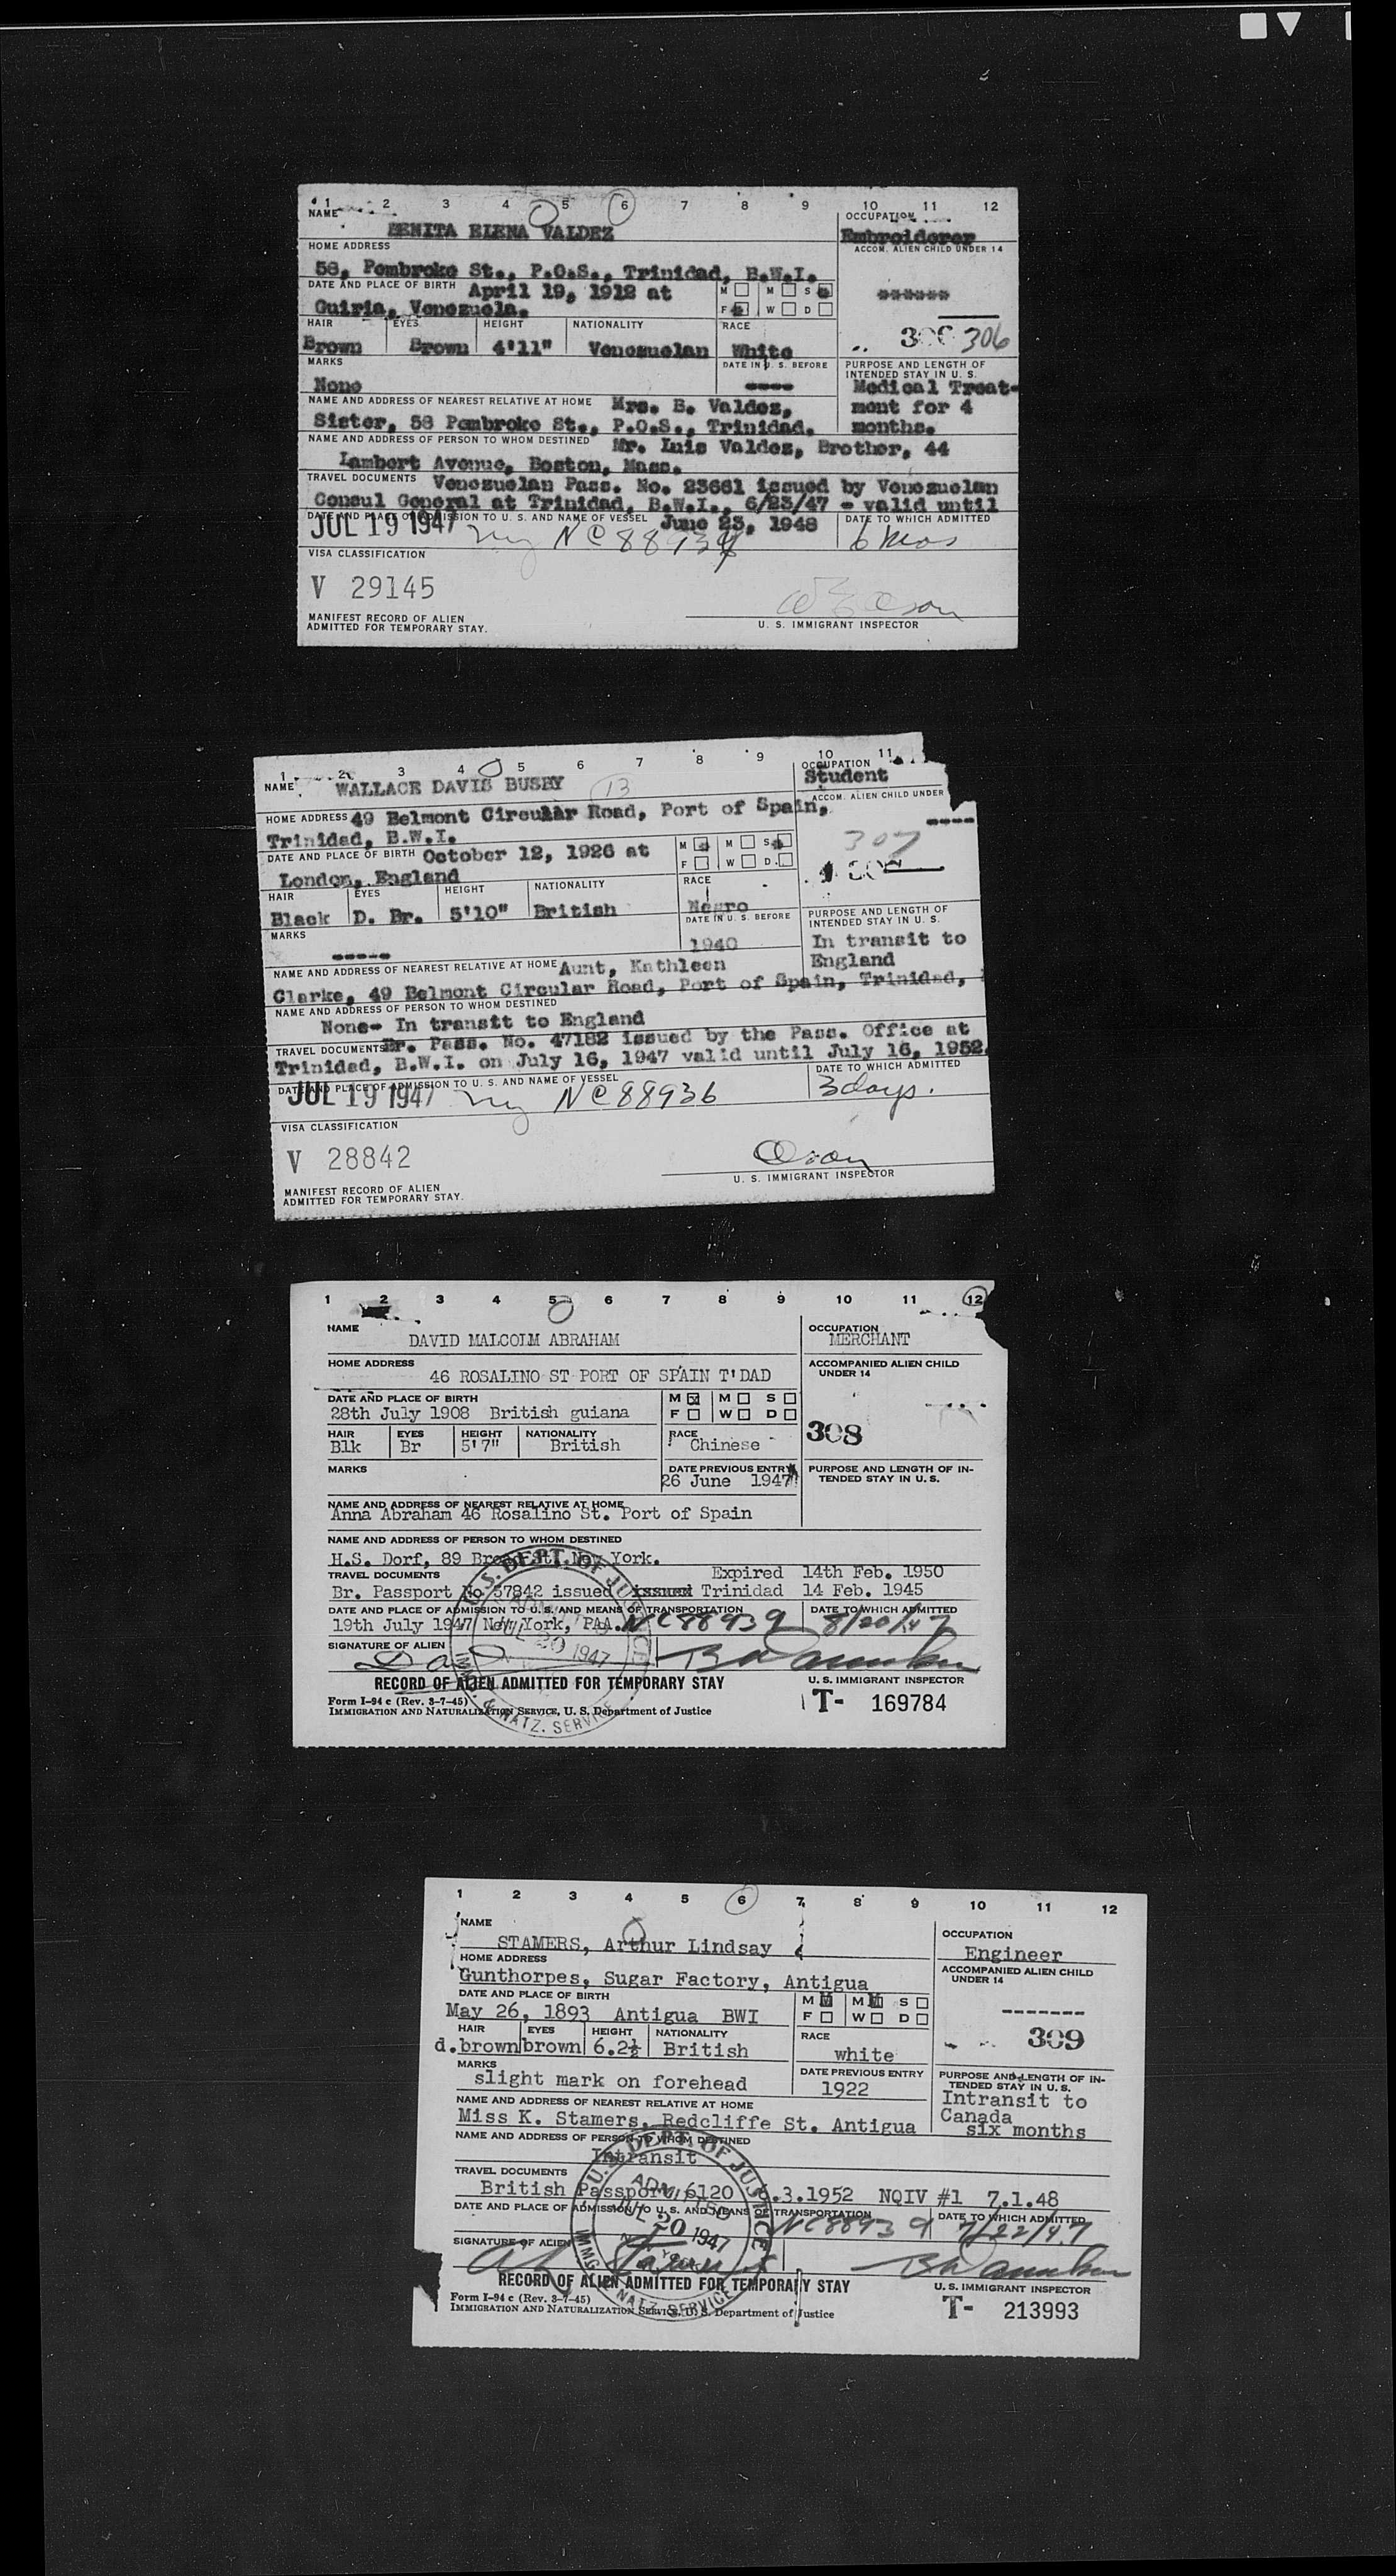 1 2 3 4 5 6 7 8 9 10 11 12
NAME OCCUPATION
BENITA ELENA VALDEZ Embroiderer
HOME ADDRESS ACCOM. ALIEN CHILD UNDER 14
58, Pembroke St., P.O.S., Trinidad, B.W.I.
DATE AND PLACE OF BIRTH April 19, 1912 at M M S
Guiria, Venezuela. F W D
HAIR EYES HEIGHT NATIONALITY RACE 306
Brown Brown 4'11" Venezuelan White
MARKS DATE IN U. S. BEFORE PURPOSE AND LENGTH OF INTENDED STAY IN U. S.
None ---- Medical Treat-
NAME AND ADDRESS OF NEAREST RELATIVE AT HOME Mrs. B. Valdez, ment for 4
Sister, 58 Pembroke St., P.O.S., Trinidad. months.
NAME AND ADDRESS OF PERSON TO WHOM DESTINED Mr. Luis Valdez, Brother, 44
Lambert Avenue, Boston, Mass.
TRAVEL DOCUMENTS Venezuelan Pass. No. 23661 issued by Venezuelan
Consul General at Trinidad, B.W.I., 6/23/47 - valid until
DATE AND PLACE OF ADMISSION TO U. S. AND NAME OF VESSEL June 23, 1948 DATE TO WHICH ADMITTED
JUL 19 1947 ny 6 mos
VISA CLASSIFICATION
V 29145
MANIFEST RECORD OF ALIEN
ADMITTED FOR TEMPORARY STAY. U. S. IMMIGRANT INSPECTOR
1 2 3 4 5 6 7 8 9 10 11
NAME OCCUPATION
WALLACE DAVIS BUSBY 13 Student
ACCOM. ALIEN CHILD UNDER
HOME ADDRESS 49 Belmont Circular Road, Port of Spain, ----
Trinidad, B.W.I. 307
DATE AND PLACE OF BIRTH October 12, 1926 at M M S
London, England F W D
HAIR EYES HEIGHT NATIONALITY RACE
Black D. Br. 5'10" British Negro
MARKS DATE IN U. S. BEFORE PURPOSE AND LENGTH OF INTENDED STAY IN U. S.
----- 1940 In transit to
NAME AND ADDRESS OF NEAREST RELATIVE AT HOME Aunt, Kathleen England
Clarke, 49 Belmont Circular Road, Port of Spain, Trinidad,
NAME AND ADDRESS OF PERSON TO WHOM DESTINED
None- In transtt to England
TRAVEL DOCUMENTS Br. Pass. No. 47182 issued by the Pass. Office at
Trinidad, B.W.I. on July 16, 1947 valid until July 16, 1952.
DATE AND PLACE OF ADMISSION TO U. S. AND NAME OF VESSEL DATE TO WHICH ADMITTED
JUL 19 1947 ny NC88936 3 days.
VISA CLASSIFICATION
V 28842
U. S. IMMIGRANT INSPECTOR
MANIFEST RECORD OF ALIEN
ADMITTED FOR TEMPORARY STAY.
1 2 3 4 5 6 7 8 9 10 11 12
NAME OCCUPATION
DAVID MALCOLM ABRAHAM MERCHANT
HOME ADDRESS ACCOMPANIED ALIEN CHILD UNDER 14
46 ROSALINO ST PORT OF SPAIN T'DAD
DATE AND PLACE OF BIRTH M M S
28th July 1908 British guiana F W D
HAIR EYES HEIGHT NATIONALITY RACE 308
Blk Br 5'7" British Chinese
MARKS DATE PREVIOUS ENTRY PURPOSE AND LENGTH OF INTENDED STAY IN U. S.
26 June 1947
NAME AND ADDRESS OF NEAREST RELATIVE AT HOME
Anna Abraham 46 Rosalino St. Port of Spain
NAME AND ADDRESS OF PERSON TO WHOM DESTINED
H.S. Dorf, 89 Broad St. New York.
TRAVEL DOCUMENTS Expired 14th Feb. 1950
Br. Passport No 57842 issued issued Trinidad 14 Feb. 1945
DATE AND PLACE OF ADMISSION TO U. S. AND MEANS OF TRANSPORTATION DATE TO WHICH ADMITTED
19th July 1947 New York, PAA. NC88939 8/20/47
SIGNATURE OF ALIEN
U. S. DEPT. OF JUSTICE ADMITTED JUL 20 1947 IMMG. & NATZ. SERVICE
RECORD OF ALIEN ADMITTED FOR TEMPORARY STAY U. S. IMMIGRANT INSPECTOR
Form I-94 c (Rev. 3-7-45) T- 169784
IMMIGRATION AND NATURALIZATION SERVICE, U. S. Department of Justice
1 2 3 4 5 6 7 8 9 10 11 12
NAME OCCUPATION
STAMERS, Arthur Lindsay Engineer
HOME ADDRESS ACCOMPANIED ALIEN CHILD UNDER 14
Gunthorpes, Sugar Factory, Antigua
DATE AND PLACE OF BIRTH M M S -------
May 26, 1893 Antigua BWI F W D
HAIR EYES HEIGHT NATIONALITY RACE 309
d.brown brown 6.2½ British white
MARKS DATE PREVIOUS ENTRY PURPOSE AND LENGTH OF INTENDED STAY IN U. S.
slight mark on forehead 1922 Intransit to
NAME AND ADDRESS OF NEAREST RELATIVE AT HOME Canada
Miss K. Stamers, Redcliffe St. Antigua six months
NAME AND ADDRESS OF PERSON TO WHOM DESTINED
Intransit
TRAVEL DOCUMENTS
British Passport 6120 .3.1952 NQIV #1 7.1.48
DATE AND PLACE OF ADMISSION TO U. S. AND MEANS OF TRANSPORTATION DATE TO WHICH ADMITTED
NC88939 7/22/47
SIGNATURE OF ALIEN
U. S. DEPT. OF JUSTICE ADMITTED JUL 20 1947 IMMG. & NATZ. SERVICE
RECORD OF ALIEN ADMITTED FOR TEMPORARY STAY U. S. IMMIGRANT INSPECTOR
Form I-94 c (Rev. 3-7-45) T- 213993
IMMIGRATION AND NATURALIZATION SERVICE, U. S. Department of Justice